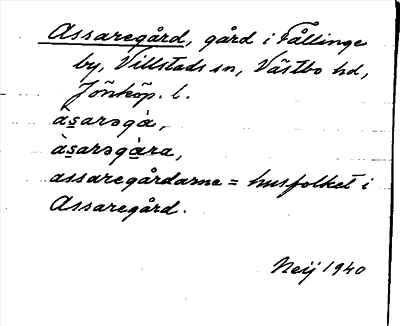 Assaregård, gård i Fållinge
by, Villstads sn, Västbo hd,
Jönköp. l.
àsarəgà,
àsarəgàra,
assaregårdarne = husfolket i
Assaregård.
Neij 1940